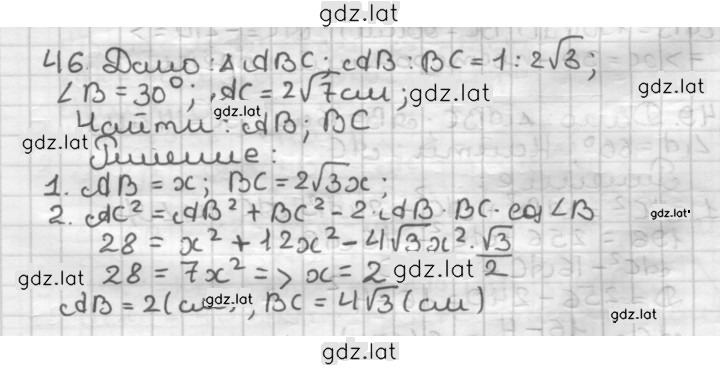 gdz.lat
46. Дано: Δ ABC; AB : BC = 1 : 2√3;
∠B = 30°; AC = 2√7 см; gdz.lat gdz.lat
gdz.lat
Найти: AB; BC
gdz.lat
Решение:
1. AB = x; BC = 2√3x;
2. AC² = AB² + BC² - 2·AB·BC·cos∠B gdz.lat
28 = x² + 12x² - 4√3x²·√3/2
gdz.lat 28 = 7x² => x = 2 gdz.lat
AB = 2 (см), BC = 4√3 (см)
gdz.lat
gdz.lat
gdz.lat